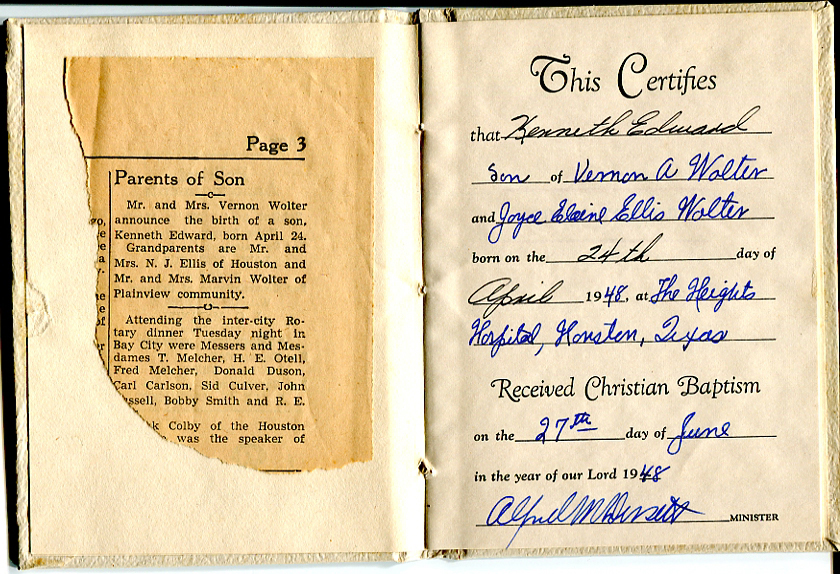 Page 3
Parents of Son
Mr. and Mrs. Vernon Wolter
announce the birth of a son,
Kenneth Edward, born April 24.
Grandparents are Mr. and
Mrs. N. J. Ellis of Houston and
Mr. and Mrs. Marvin Wolter of
Plainview community.
Attending the inter-city Ro-
tary dinner Tuesday night in
Bay City were Messers and Mes-
dames T. Melcher, H. E. Otell,
Fred Melcher, Donald Duson,
Carl Carlson, Sid Culver, John
ssell, Bobby Smith and R. E.
k Colby of the Houston
was the speaker of
This Certifies
that Kenneth Edward
Son of Vernon A Wolter
and Joyce Elaine Ellis Wolter
born on the 24th day of
April 1948, at The Heights
Hospital, Houston, Texas
Received Christian Baptism
on the 27th day of June
in the year of our Lord 1948
Alfred M
MINISTER